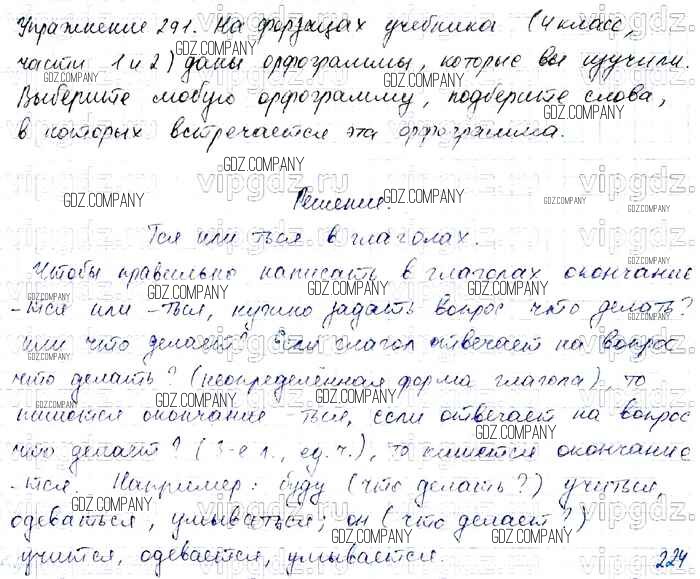 Упражнение 291. На форзацах учебника (4 класс,
части 1 и 2) даны орфограммы, которые вы изучили.
Выберите любую орфограмму, подберите слова,
в которых встречается эта орфограмма.
Решение.
Тся или ться в глаголах.
Чтобы правильно написать в глаголах окончание
-тся или -ться, нужно задать вопрос что делать?
или что делает? Если глагол отвечает на вопрос
что делать? (неопределённая форма глагола), то
пишется окончание ться, если отвечает на вопрос
что делает? (3-е л., ед. ч.), то пишется окончание
-тся. Например: буду (что делать?) учиться,
одеваться, умываться; он (что делает?)
учится, одевается, умывается.
224
GDZ.COMPANY
vipgdz.ru